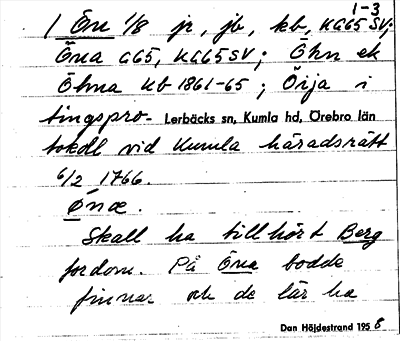 1-3
1 Ön 1/8 jr, jb, kb, KG65 SV;
Öna G65, KG65SV; Öhn ek
Öhna kb 1861-65; Örja i
tingspro- Lerbäcks sn, Kumla hd, Örebro län
tokoll vid Kumla häradsrätt
6/2 1766.
Skall ha tillhört Berg
fordom. På Öna bodde
finnar och de lär ha
Dan Höjdestrand 1958